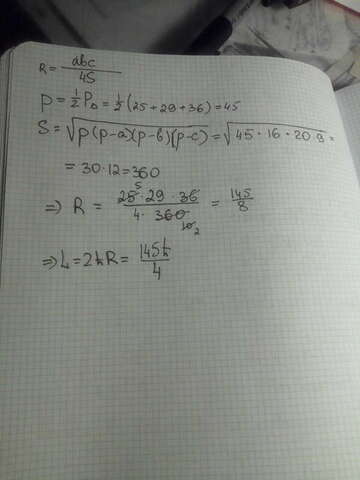 R = abc / 4S
p = 1/2 P△ = 1/2 (25 + 29 + 36) = 45
S = √p(p-a)(p-b)(p-c) = √45 · 16 · 20 9 =
= 30 · 12 = 360
⇒ R = 25 · 29 · 36 / 4 · 360 = 145 / 8
5
10 2
⇒ L = 2πR = 145π / 4